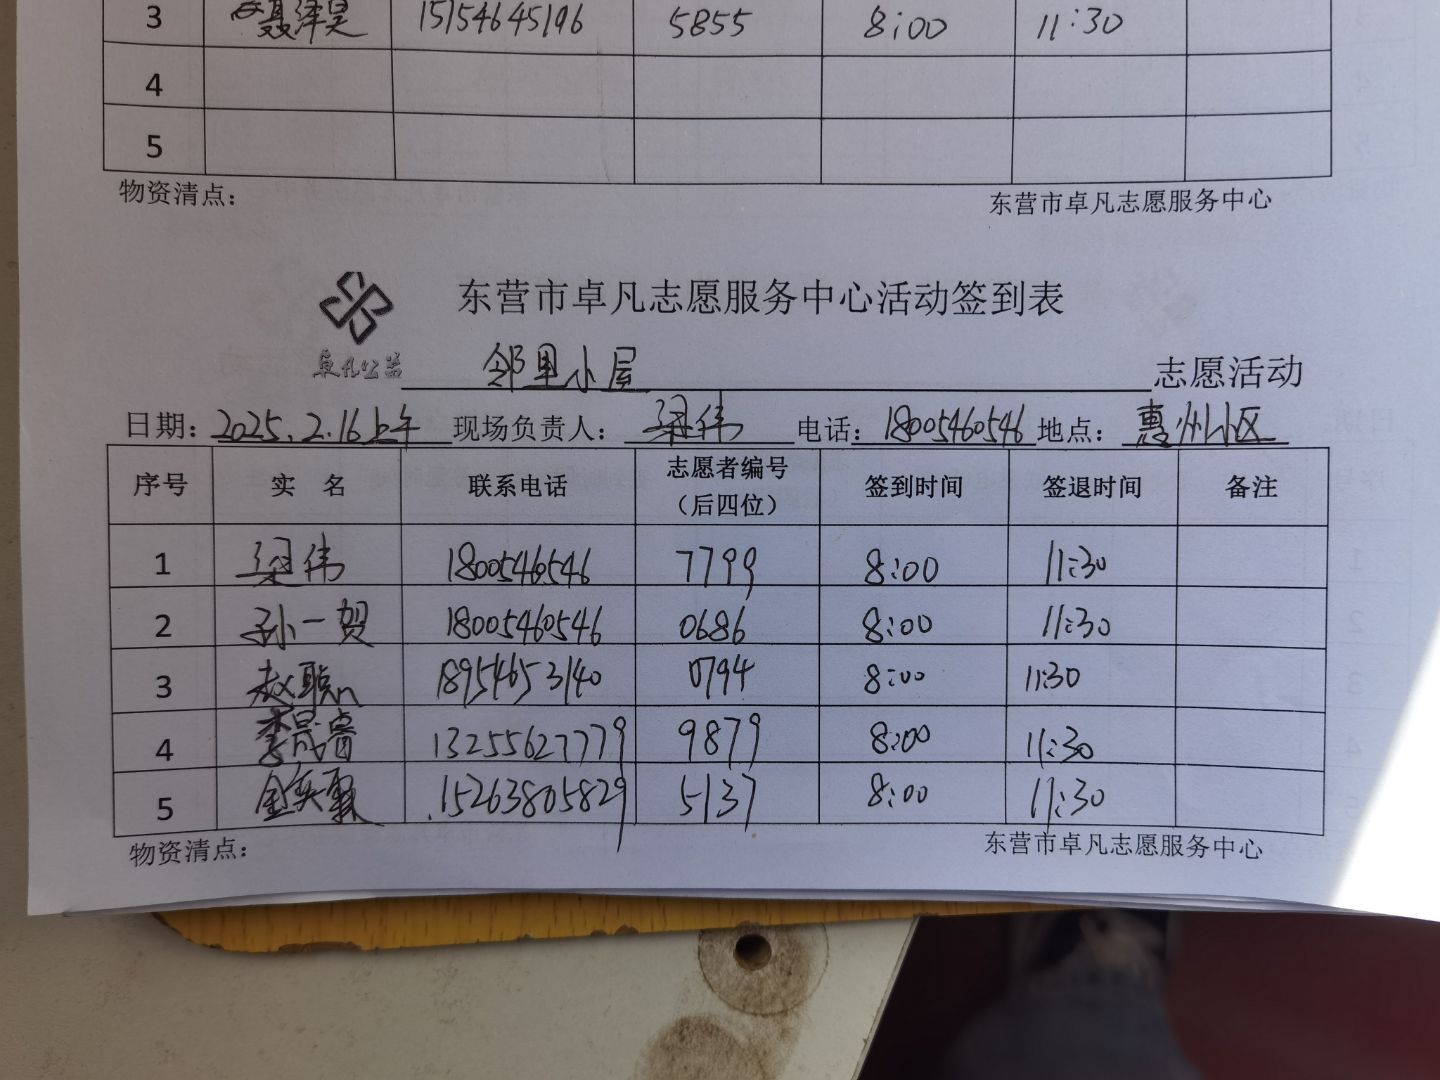 3 聂泽昊 15154645196 5855 8:00 11:30
4
5
物资清点： 东营市卓凡志愿服务中心
东营市卓凡志愿服务中心活动签到表
卓凡公益
邻里小屋 志愿活动
日期：2025.2.16上午 现场负责人：梁伟 电话：18005460546 地点：惠州小区
序号 实 名 联系电话 志愿者编号（后四位） 签到时间 签退时间 备注
1 梁伟 1800546546 7799 8:00 11:30
2 孙一贺 18005460546 0686 8:00 11:30
3 赵聪 18954653140 0794 8:00 11:30
4 李晟睿 13255627779 9879 8:00 11:30
5 15263805829 5137 8:00 11:30
物资清点： 东营市卓凡志愿服务中心